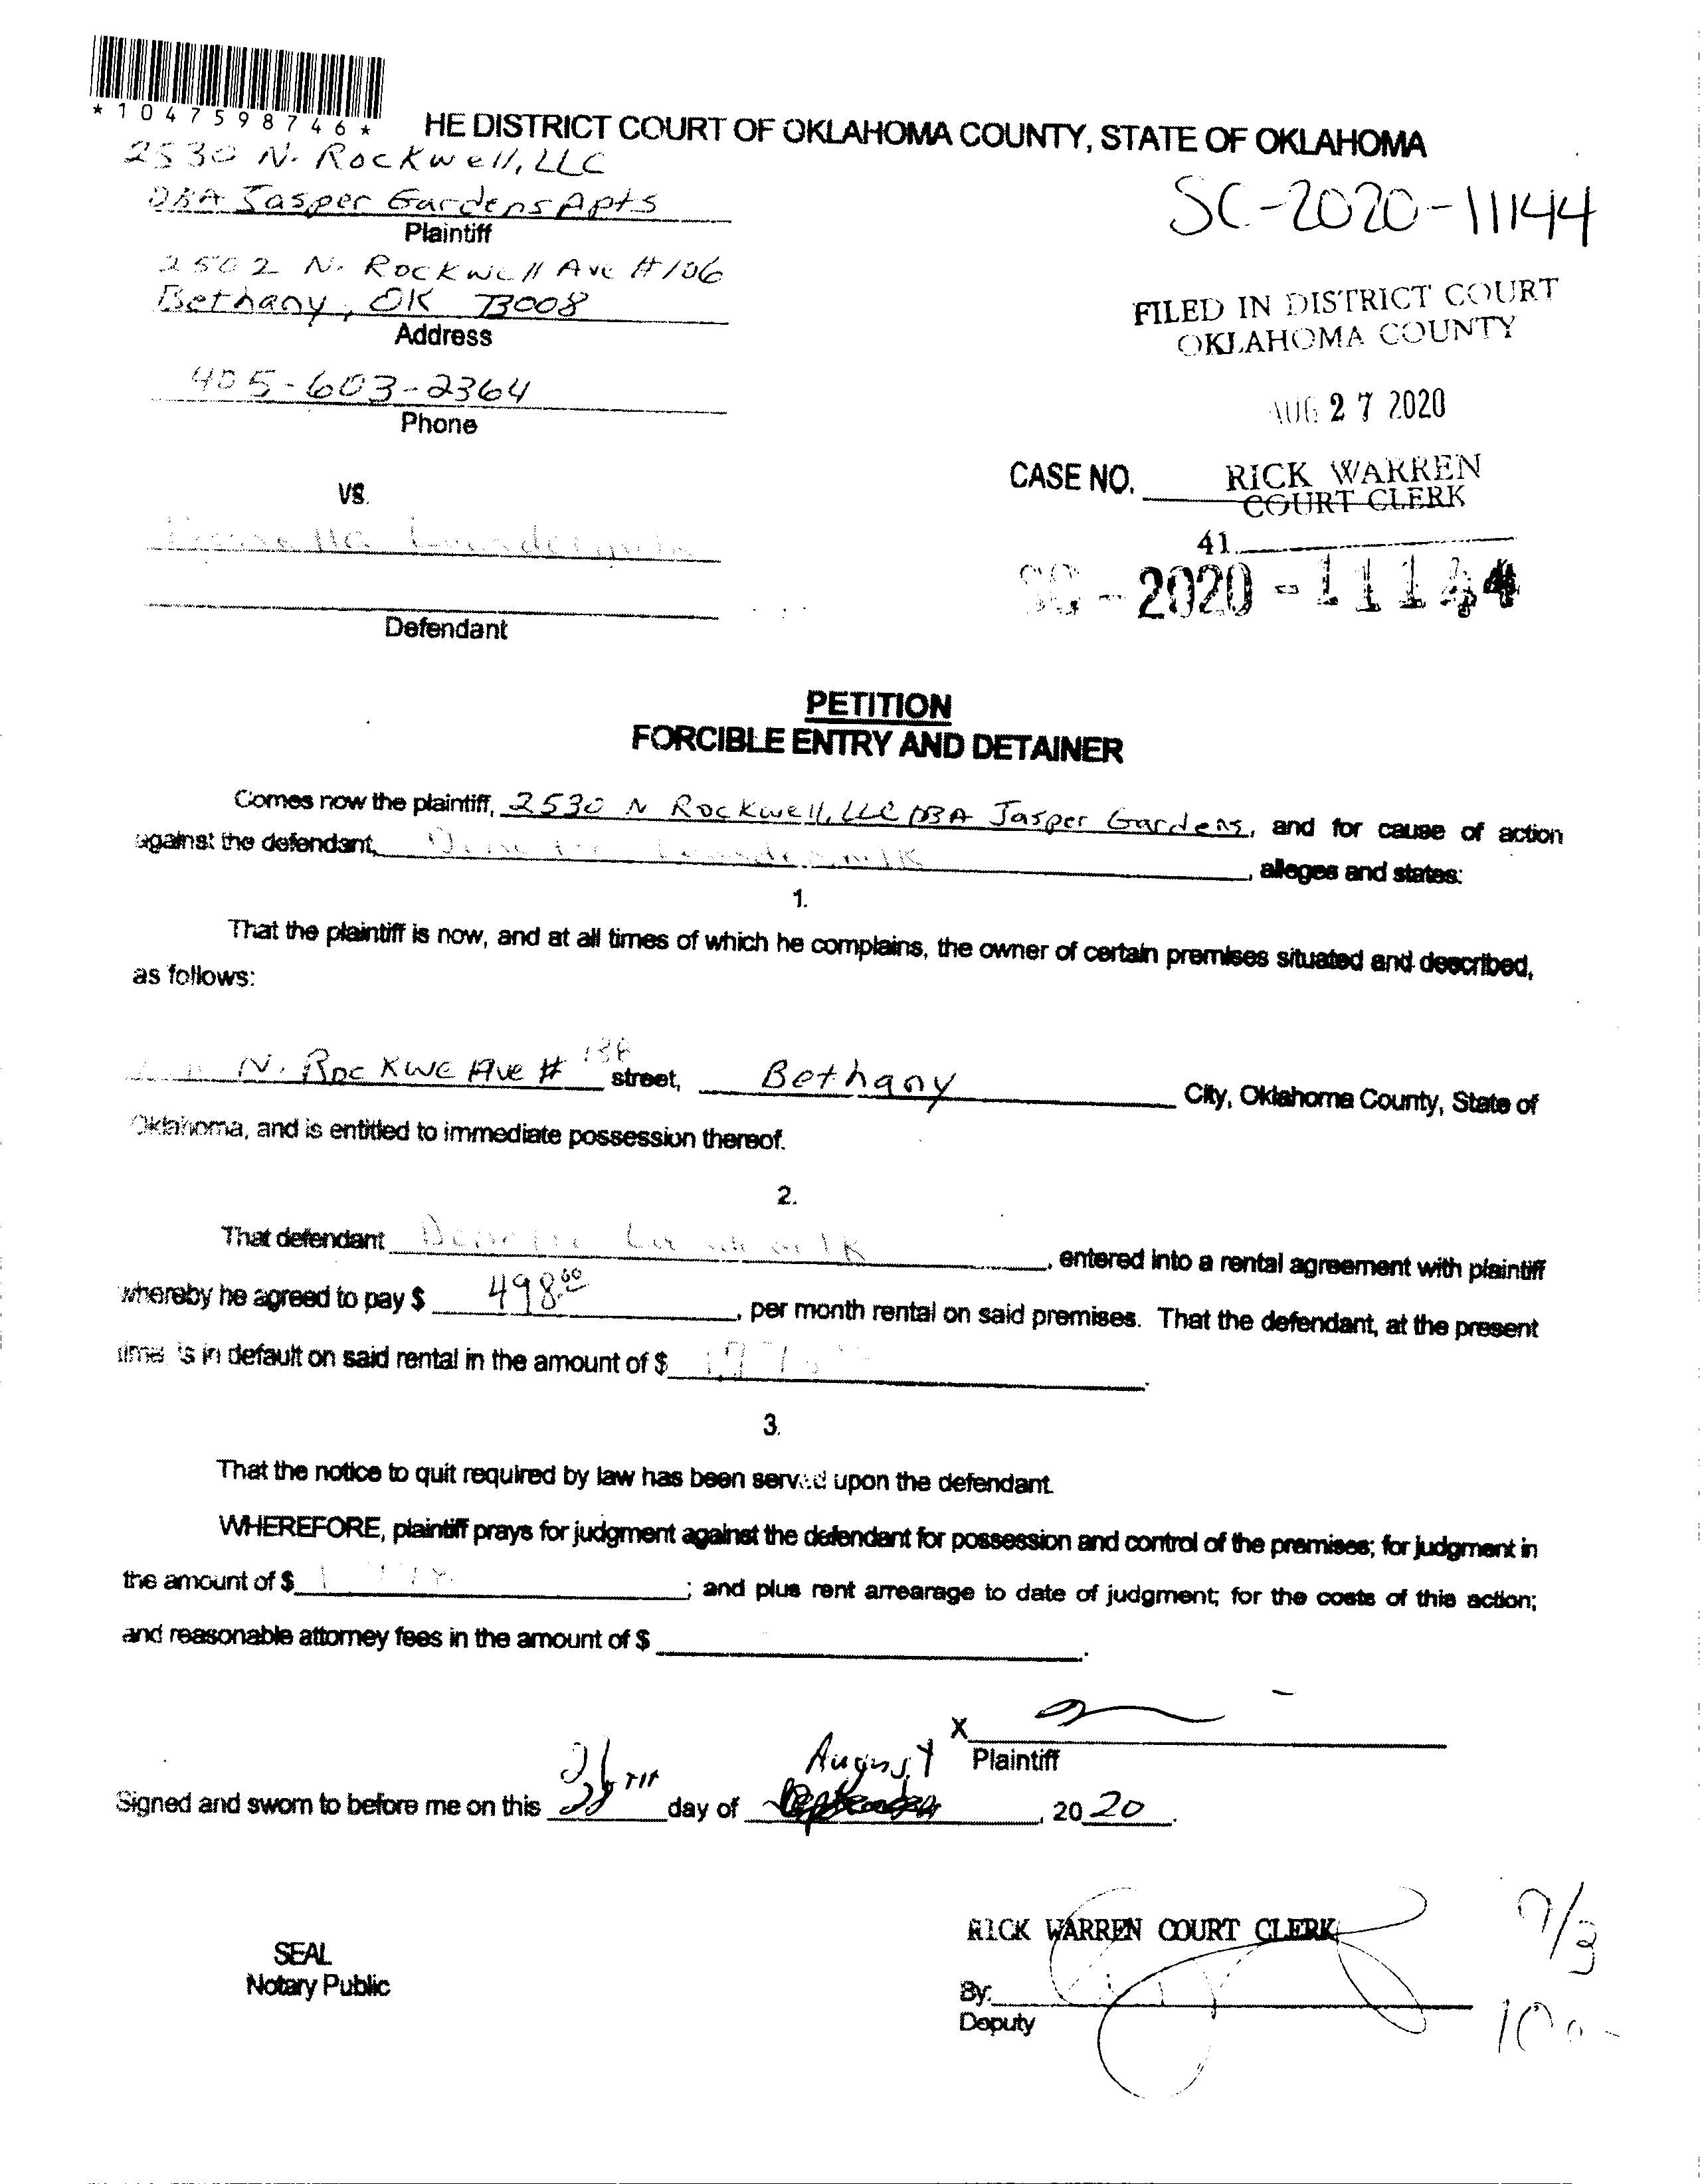 *1047598746*
HE DISTRICT COURT OF OKLAHOMA COUNTY, STATE OF OKLAHOMA
2530 N. Rockwell, LLC
DBA Jasper Gardens Apts
Plaintiff
SC-2020-11144
2502 N. Rockwell Ave #106
Bethany, OK 73008
Address
FILED IN DISTRICT COURT
OKLAHOMA COUNTY
405-603-2364
Phone
AUG 27 2020
CASE NO.
RICK WARREN
COURT CLERK
vs.
41
SC-2020-11144
Defendant
PETITION
FORCIBLE ENTRY AND DETAINER
Comes now the plaintiff, 2530 N Rockwell, LLC DBA Jasper Gardens, and for cause of action
against the defendant, , alleges and states:
1.
That the plaintiff is now, and at all times of which he complains, the owner of certain premises situated and described,
as follows:
N. Rockwe Ave # street, Bethany City, Oklahoma County, State of
Oklahoma, and is entitled to immediate possession thereof.
2.
That defendant , entered into a rental agreement with plaintiff
whereby he agreed to pay $ 498.00, per month rental on said premises. That the defendant, at the present
time is in default on said rental in the amount of $ .
3.
That the notice to quit required by law has been served upon the defendant.
WHEREFORE, plaintiff prays for judgment against the defendant for possession and control of the premises; for judgment in
the amount of $ ; and plus rent arrearage to date of judgment; for the costs of this action;
and reasonable attorney fees in the amount of $ .
X
Plaintiff
August
Signed and sworn to before me on this day of , 2020.
RICK WARREN COURT CLERK
SEAL
Notary Public
By:
Deputy